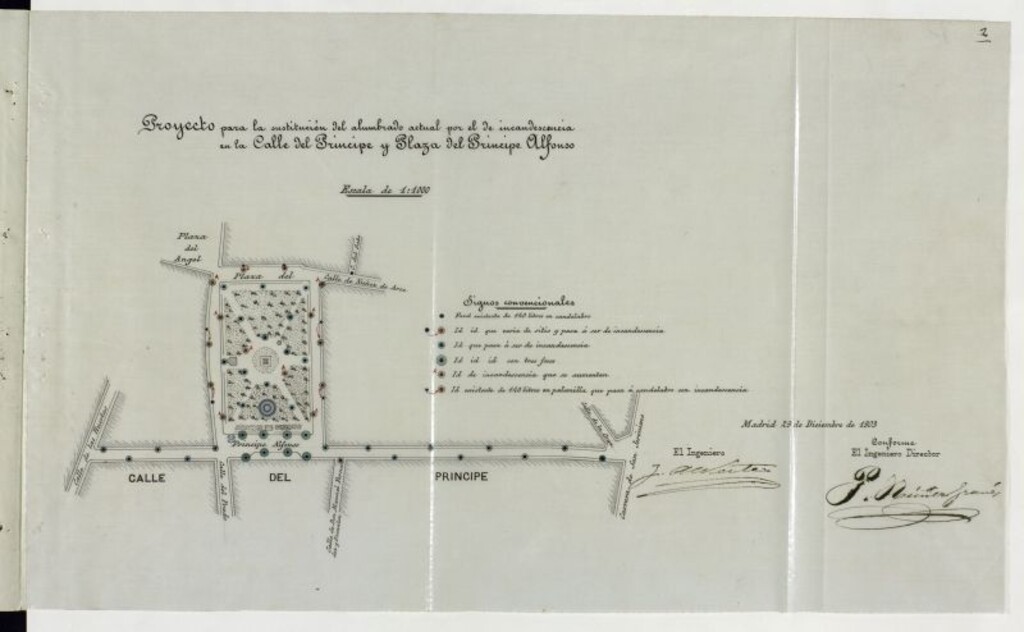 2
Proyecto para la sustitución del alumbrado actual por el de incandescencia
en la Calle del Principe y Plaza del Principe Alfonso
Escala de 1:1000
Plaza
del
Angel
Plaza del
Calle de Nuñez de Arce
Signos convencionales
Farol existente de 140 litros en candelabro
Id. id. que varia de sitio y pasa á ser de incandescencia
Id. que pasa á ser de incandescencia
Id. id. id. con tres focos
Id. de incandescencia que se aumentan
Id. existente de 140 litros en palomilla que pasa á candelabro con incandescencia
Principe Alfonso
CALLE DEL PRINCIPE
Calle de las Huertas
Calle del Prado
Calle de
Carrera de San Jeronimo
Madrid 29 de Diciembre de 1903
El Ingeniero
Conforme
El Ingeniero Director
P. Nuñez Granés